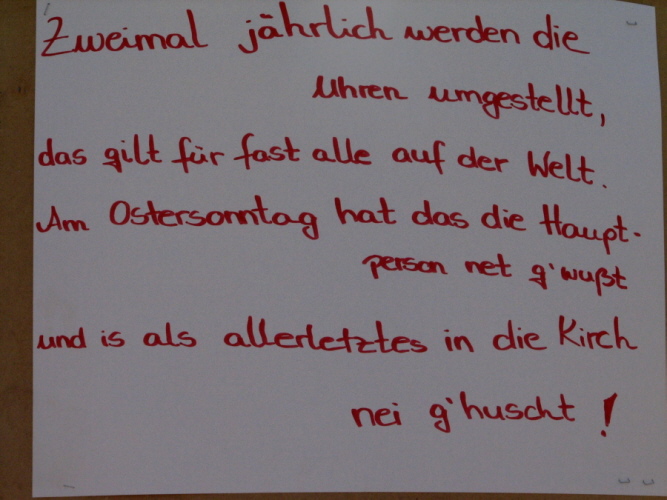 Zweimal jährlich werden die
Uhren umgestellt,
das gilt für fast alle auf der Welt.
Am Ostersonntag hat das die Haupt-
person net g'wußt
und is als allerletztes in die Kirch
nei g'huscht!